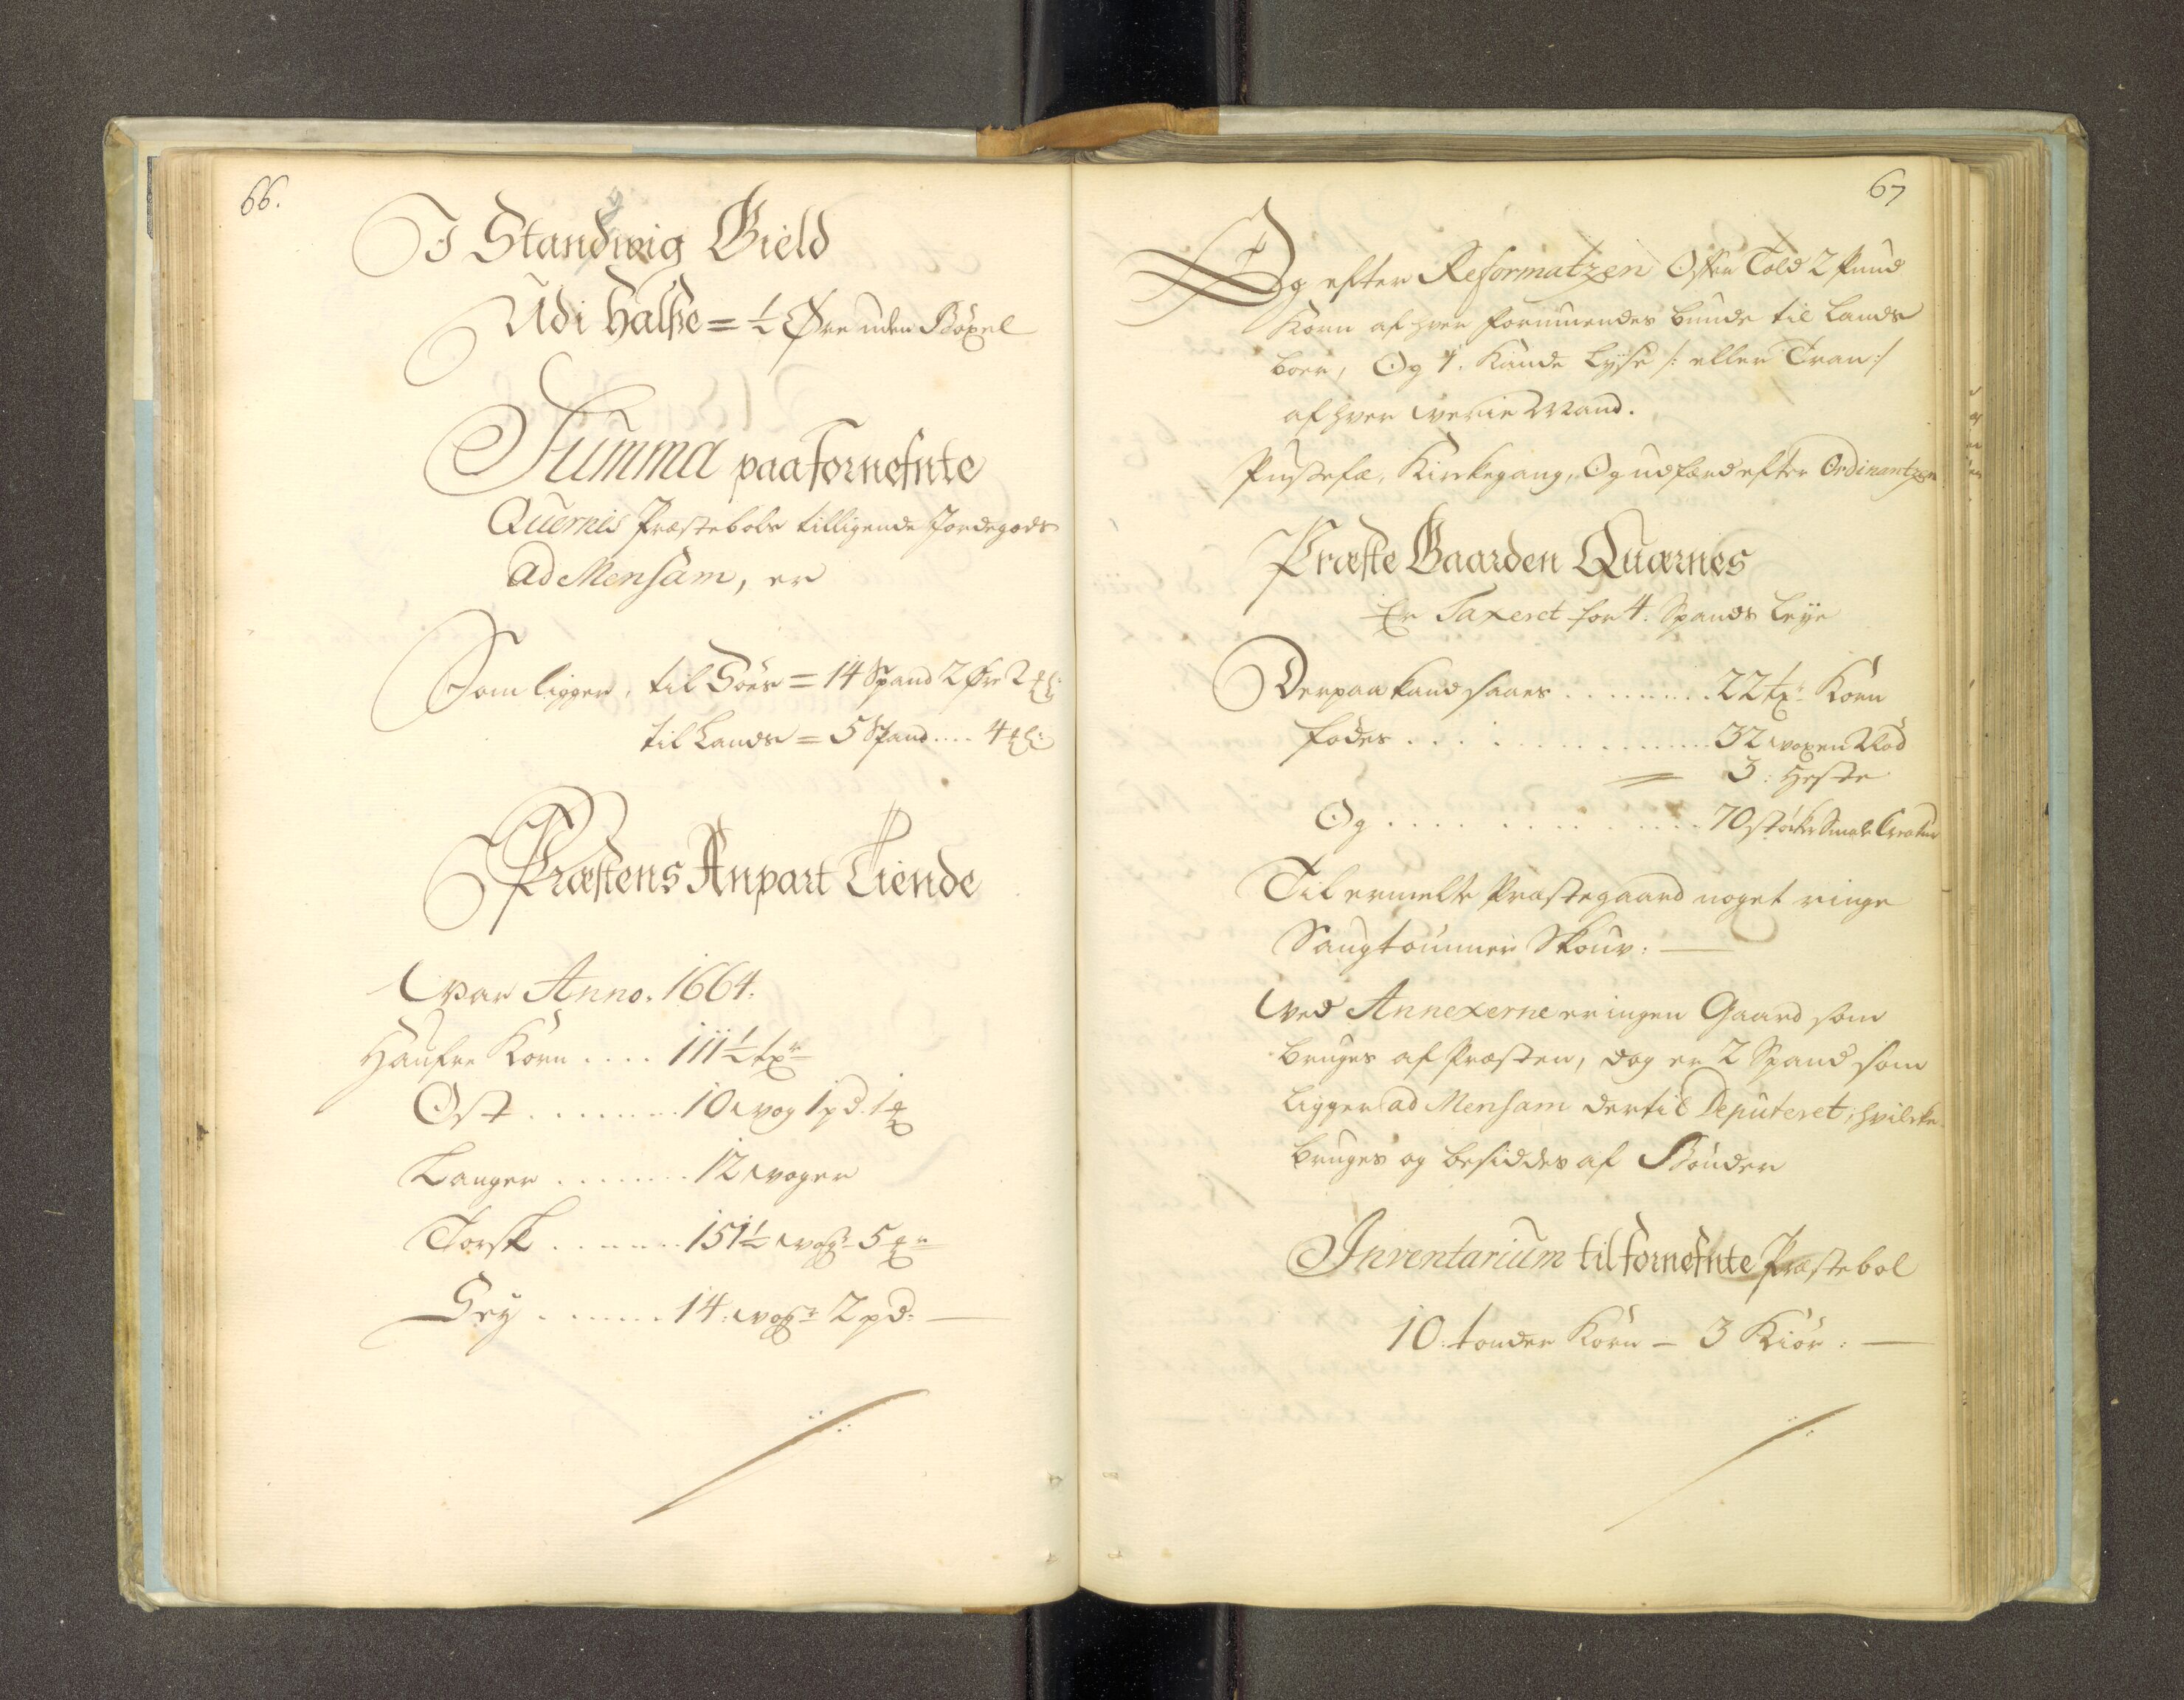 66.
I Standwig Gield
Udi Halße = ½ Øre uden Böxel
Summa paa fornefnte
Quernis Præstebols tilligende Jordegods
ad Mensam, er
Som ligger, til Söes = 14 Spand 2 Øre 2
til Lands = 5 Spand .... 4
Præstens Anpart Tiende
War Anno. 1664.
Haufre Korn .... 111½ tr
Ost ........ 10 wog 1 pd. 1
Langer ....... 12 woger
Torsk ....... 151½ wogr 5
Sey ...... 14: wogr 2 pd: —
67
Og efter Reformatzen Offer Told 2 Pund
Korn af hver formuendes bunde til Lands
boer, Og 1. Kande Lyse /: eller Tran :/
af hver werie Mand.
Pußefæ, Kirkegang, Og udfærd efter Ordinantzen
Præste Gaarden Quærnes
Er Taxeret for 4. Spands Leye
Derpaa kand saaes ........ 22 tr Korn
födes ................. 32 woxen Nöd
= 3: Heste
Og ............ 70 støcker Smale Creatur
Til ermelte Præstegaard noget ringe
Saugtömmer Skouv: —
Wed Annexerne er ingen Gaard som
bruges af Præsten, dog er 2 Spand som
Ligger ad Mensam dertil Deputeret, hvilcke
bruges og besiddes af Bönder
Inventarium til fornefnte Præstebol
10: tønder Korn – 3 Kiör: —